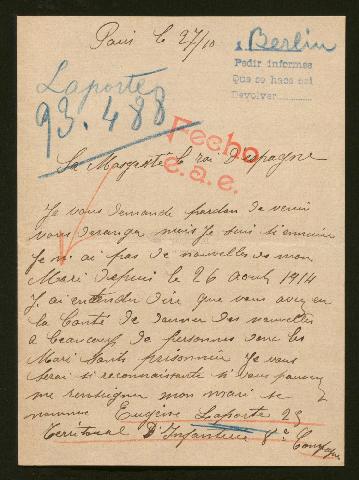 Paris le 27/10
Berlin
Pedir informes
Que se hace así
Devolver
Laporte
93.488
Fecho
e.a.e.
Sa Magesté le roi d'espagne
Je vous demande pardon de venir
vous deranger mais Je suis si ennuiee
Je n'ai pas de nouvelles de mon
Mari depuis le 26 aout 1914
J'ai entendu dire que vous aviez eu
la Bonté de donner des nouvelles
a beaucoup de personnes donc les
Mari sont prisonnier Je vous
serai si reconnaissante si vous pouvez
me renseigner mon mari se
nomme Eugène Laporte 25
Territorial D'Infanterie 8e Compagnie